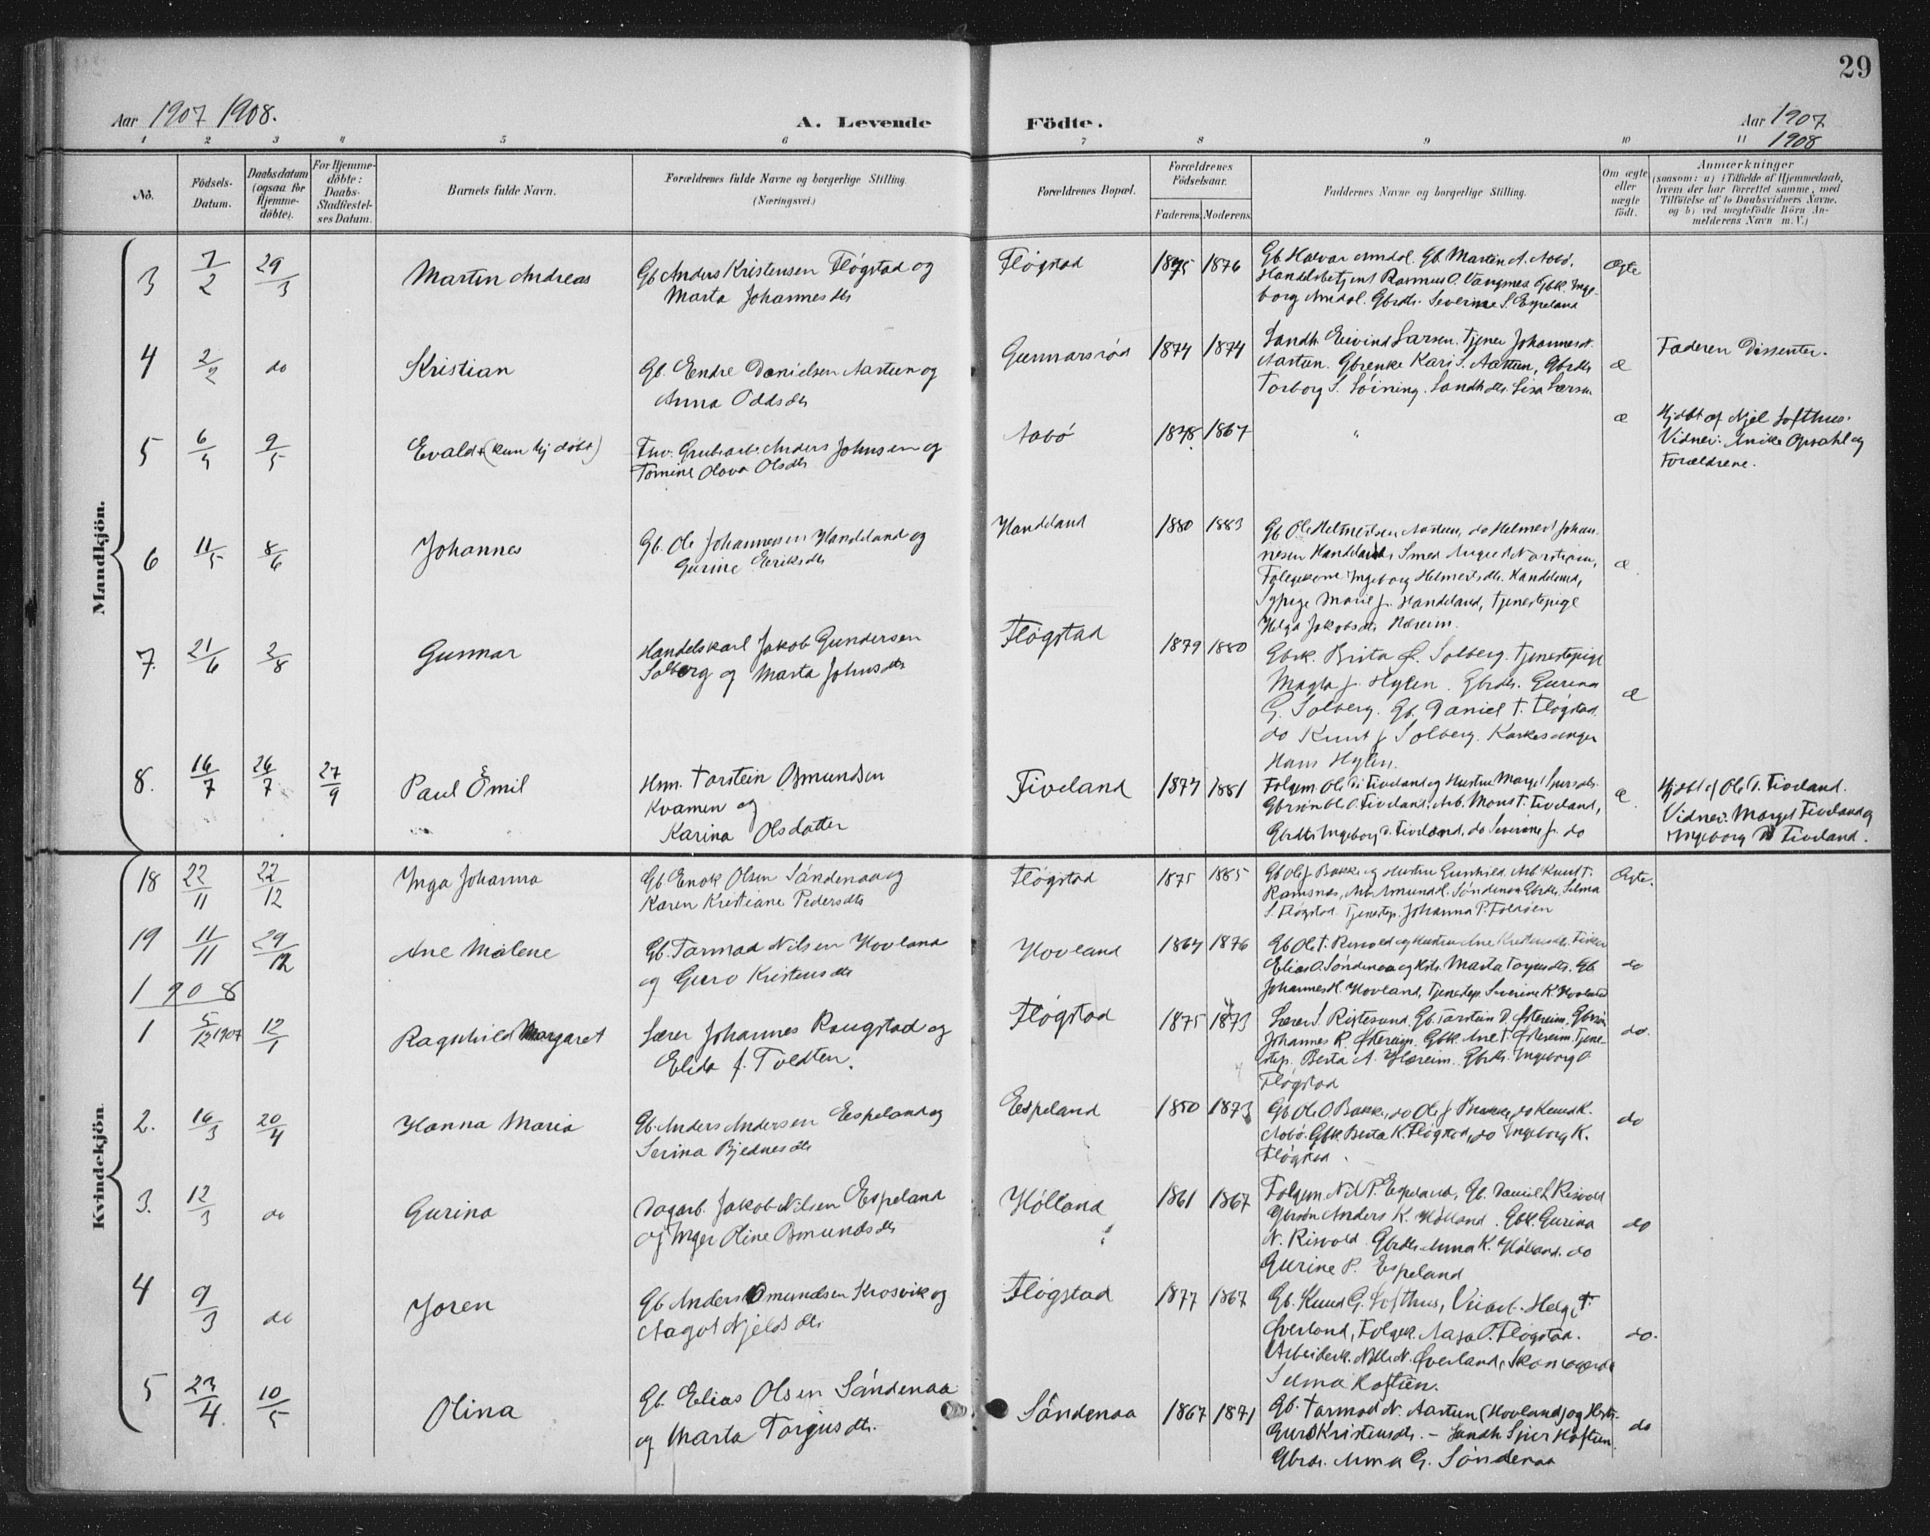 29
Aar 1907 1908.
A. Levende Födte.
Aar 1907
1908
1 2 3 4 5 6 7 8 9 10 11
No.
Födsels-Datum.
Daabsdatum (ogsaa for Hjemme-döbte).
For Hjemme-döbte: Daabs-Stadfæstelses Datum.
Barnets fulde Navn.
Forældrenes fulde Navne og borgerlige Stilling. (Næringsvei.)
Forældrenes Bopæl.
Forældrenes Födselsaar.
Faderens. Moderens.
Faddernes Navne og borgerlige Stilling.
Om ægte eller uægte födt.
Anmærkninger
(saasom: a) i Tilfælde af Hjemmedaab, hvem der har forrettet samme, med Tilföielse af to Daabsvidners Navne, og b) ved uægtefödte Börn Anmelderens Navn m. V.)
Mandkjön.
3 7/2 29/3 Martin Andreas
Gb. Anders Kristensen Fløgstad og
Marta Johannesdtr
Fløgstad 1875 1876
Gb. Halvar Amdal. Gb. Martin A. Aabø,
Handelsbetjent Rasmus O. Vangsnes Gbk. Inge-
borg Amdal. Gbrdtr. Severine S. Espeland
Ægte
4 2/2 do Kristian
Gb. Endre Danielsen Aartun og
Anna Oddsdtr
Gunnarsrød 1874 1874
Landh. Eivind Larsen. Tjener Johannes
Aartun. Gbrenke Kari S. Aartun, Gbrdtr
Torborg S. Løining. Landh.dtr. Lisa Larsen
æ
Faderen Dissenter.
5 6/4 9/5 Evald (kun hj døbt)
Fhv. Grubearb. Anders Johnsen og
Tomine Olava Olsdtr
Aabø 1878 1867
"
æ
Hjdbt af Njel Lofthus.
Vidner: Inike Opsahl og
Forældrene.
6 11/5 8/6 Johannes
Gb. Ole Johannesen Handeland og
Gurine Eriksdtr
Handeland 1880 1883
Gb. Ole Helmertsen Aartun, do Helmert Johan-
nesen Handeland, Smed August Norstrøm,
Folgekone Ingeborg Helmertsdtr. Handeland,
Sypige Marie J. Handeland, Tjenestepige
Helga Jakobsdtr Hæreim.
æ
7. 21/6 2/8 Gunnar
Handelskarl Jakob Gundersen
Solberg og Marta Johnsdtr
Fløgstad 1879 1880
Gbrk. Brita Ø. Solberg. Tjenestepige
Magla J. Hylen. Gbrdtr. Gurina
G. Solberg. Gb. Daniel T. Fløgstad.
do Knut J. Solberg. Kirkesanger
Hans Hylen.
æ
8. 16/7 26/7 27/9 Paul Emil
Hmn. Torstein Osmundsen
Kvamen og
Karina Olsdatter
Fiveland 1877 1881
Folgem. Ole T. Fiveland og Hustru Marget Sjursdtr.
Gbrsøn Ole O. Fiveland, Arb. Mons T. Fiveland,
Gbrdtr Ingeborg O. Fiveland, do Severine J. do
æ
Hjdbt af Ole T. Fiveland.
Vidner: Marget Fiveland og
Ingeborg O. Fiveland.
Kvindekjön.
18 22/11 22/12 Inga Johanna
Gb. Enok Olsen Søndenaa og
Karen Kristiane Pedersdtr
Fløgstad 1875 1885
Gb Ole J. Bakke og Hustru Gunhild. Arb Knut T.
Ramsnes, Arb. Amund H. Søndenaa Gbrk. Selma
S. Fløgstad. Tjenestep. Johanna P. Foldøen
Ægte.
19 11/11 29/12 Ane Malene
Gb. Tarmod Nilsen Hovland
og Guro Kristensdtr
Hovland 1864 1876
Gb Ole T. Risvold og Hustru Ane Kristensdtr. Fisker
Elias O. Søndenaa og Hstr. Marta Torgusdtr. Gb.
Johannes H. Hovland, Tjenestep. Severine K. Hovland
do
1908
1 5/12 1907 12/1 Ragnhild Margaret
Lærer Johannes Raugstad og
Elida J. Tvedten.
Fløgstad 1875 1873
Lærer S. Ristesund. Gb. Torstein D. Østereim. Gbrsøn
Johannes R. Østereim. Gbk. Ane T. Østereim. Tjene-
step. Berta A. Hæreim. Gbrdtr. Ingeborg O.
Fløgstad
do.
2. 16/3 20/4 Hanna Maria
Gb. Anders Andersen Espeland og
Serina Bjednesdtr
Espeland 1850 1873
Gb Ole O Bakke, do Ole J Bakke, do Knud K.
Aabø. Gbk. Berta K. Fløgstad, do Ingeborg K.
Fløgstad.
do
3. 12/3 do Gurina
Dagarb. Jakob Nilsen Espeland
og Inger Oline Osmundsdtr
Hølland 1861 1867
Folgem. Nil P. Espeland, Gb. Daniel L Risvold
Gbrsøn Anders K. Hølland. Gbk. Gurina
N. Risvold. Gbrdtr. Anna K. Hølland. do
Gurine P. Espeland
do
4 9/3 do Joren
Gb. Anders Omundsen Krosvik og
Aagot Njeldsdtr
Fløgstad 1877 1867
Gb. Knud G. Lofthus, Veiarb. Helge T.
Øverland, Folgek. Aasa O. Fløgstad.
Arbeiderk. Nille N. Øverland,
Selma Koftun.
do.
5 23/4 10/5 Olina
Gb. Elias Olsen Søndenaa
og Marta Torgusdtr.
Søndenaa 1867 1871
Gb. Tarmod N. Aartun (Hovland) og Hstr.
Guro Kristensdtr. – Landh. Sjur Koftun.
Gbrdr. Anna G. Søndenaa
do